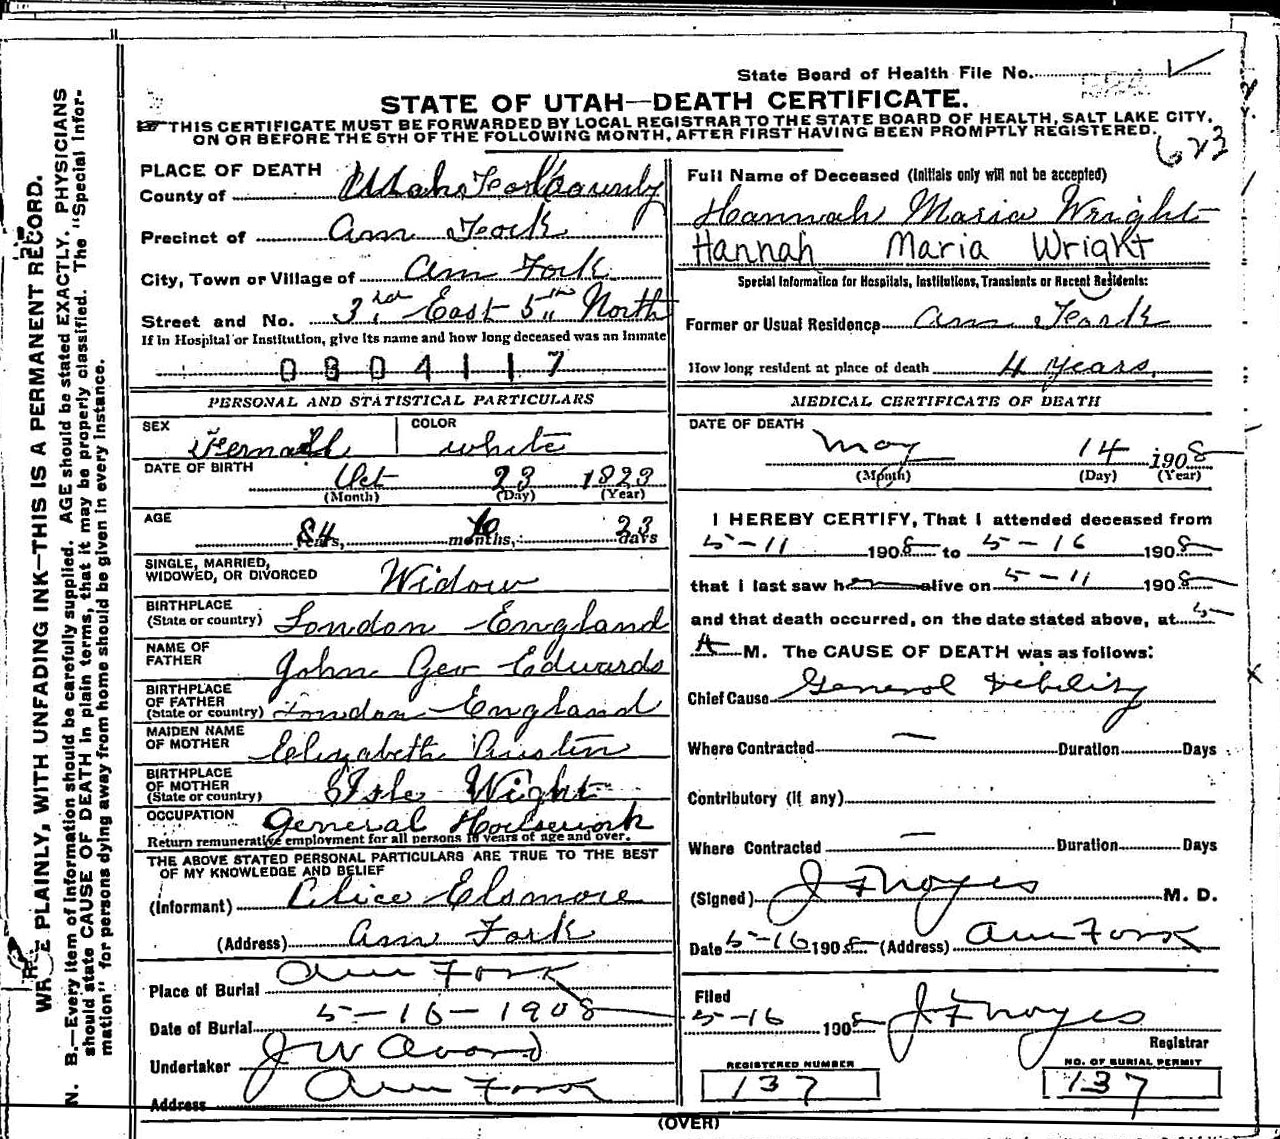 State Board of Health File No.
STATE OF UTAH—DEATH CERTIFICATE.
THIS CERTIFICATE MUST BE FORWARDED BY LOCAL REGISTRAR TO THE STATE BOARD OF HEALTH, SALT LAKE CITY,
ON OR BEFORE THE 5TH OF THE FOLLOWING MONTH, AFTER FIRST HAVING BEEN PROMPTLY REGISTERED.
623
WRITE PLAINLY, WITH UNFADING INK—THIS IS A PERMANENT RECORD.
N. B.—Every item of information should be carefully supplied. AGE should be stated EXACTLY. PHYSICIANS
should state CAUSE OF DEATH in plain terms, that it may be properly classified. The "Special Infor-
mation" for persons dying away from home should be given in every instance.
PLACE OF DEATH
County of Utah County
Precinct of Am Fork
City, Town or Village of Am Fork
Street and No. 3rd East 5th North
If in Hospital or Institution, give its name and how long deceased was an inmate
0804117
PERSONAL AND STATISTICAL PARTICULARS
SEX Female COLOR white
DATE OF BIRTH Oct 23 1823
(Month) (Day) (Year)
AGE 84 years, months, 23 days
SINGLE, MARRIED,
WIDOWED, OR DIVORCED Widow
BIRTHPLACE
(State or country) London England
NAME OF
FATHER John Geo Edwards
BIRTHPLACE
OF FATHER
(State or country) London England
MAIDEN NAME
OF MOTHER Elizabeth Austin
BIRTHPLACE
OF MOTHER
(State or country) Isle Wight
OCCUPATION General Housework
Return remunerative employment for all persons 10 years of age and over.
THE ABOVE STATED PERSONAL PARTICULARS ARE TRUE TO THE BEST
OF MY KNOWLEDGE AND BELIEF
(Informant) Alice Elsmore
(Address) Am Fork
Place of Burial Am Fork
Date of Burial 5-16-1908
Undertaker J W Anderson
Address Am Fork
Full Name of Deceased (Initials only will not be accepted)
Hannah Maria Wright
Hannah Maria Wright
Special Information for Hospitals, Institutions, Transients or Recent Residents:
Former or Usual Residence Am Fork
How long resident at place of death 4 years.
MEDICAL CERTIFICATE OF DEATH
DATE OF DEATH
May 14 1908
(Month) (Day) (Year)
I HEREBY CERTIFY, That I attended deceased from
5-11 1908 to 5-16 1908
that I last saw h alive on 5-11 1908
and that death occurred, on the date stated above, at 5
A M. The CAUSE OF DEATH was as follows:
Chief Cause General Debility
Where Contracted — Duration Days
Contributory (if any)
Where Contracted — Duration Days
(Signed) J F Noyes M. D.
Date 5-16 1908 (Address) Am Fork
Filed
5-16 1908 J F Noyes
Registrar
REGISTERED NUMBER
137
NO. OF BURIAL PERMIT
137
(OVER)